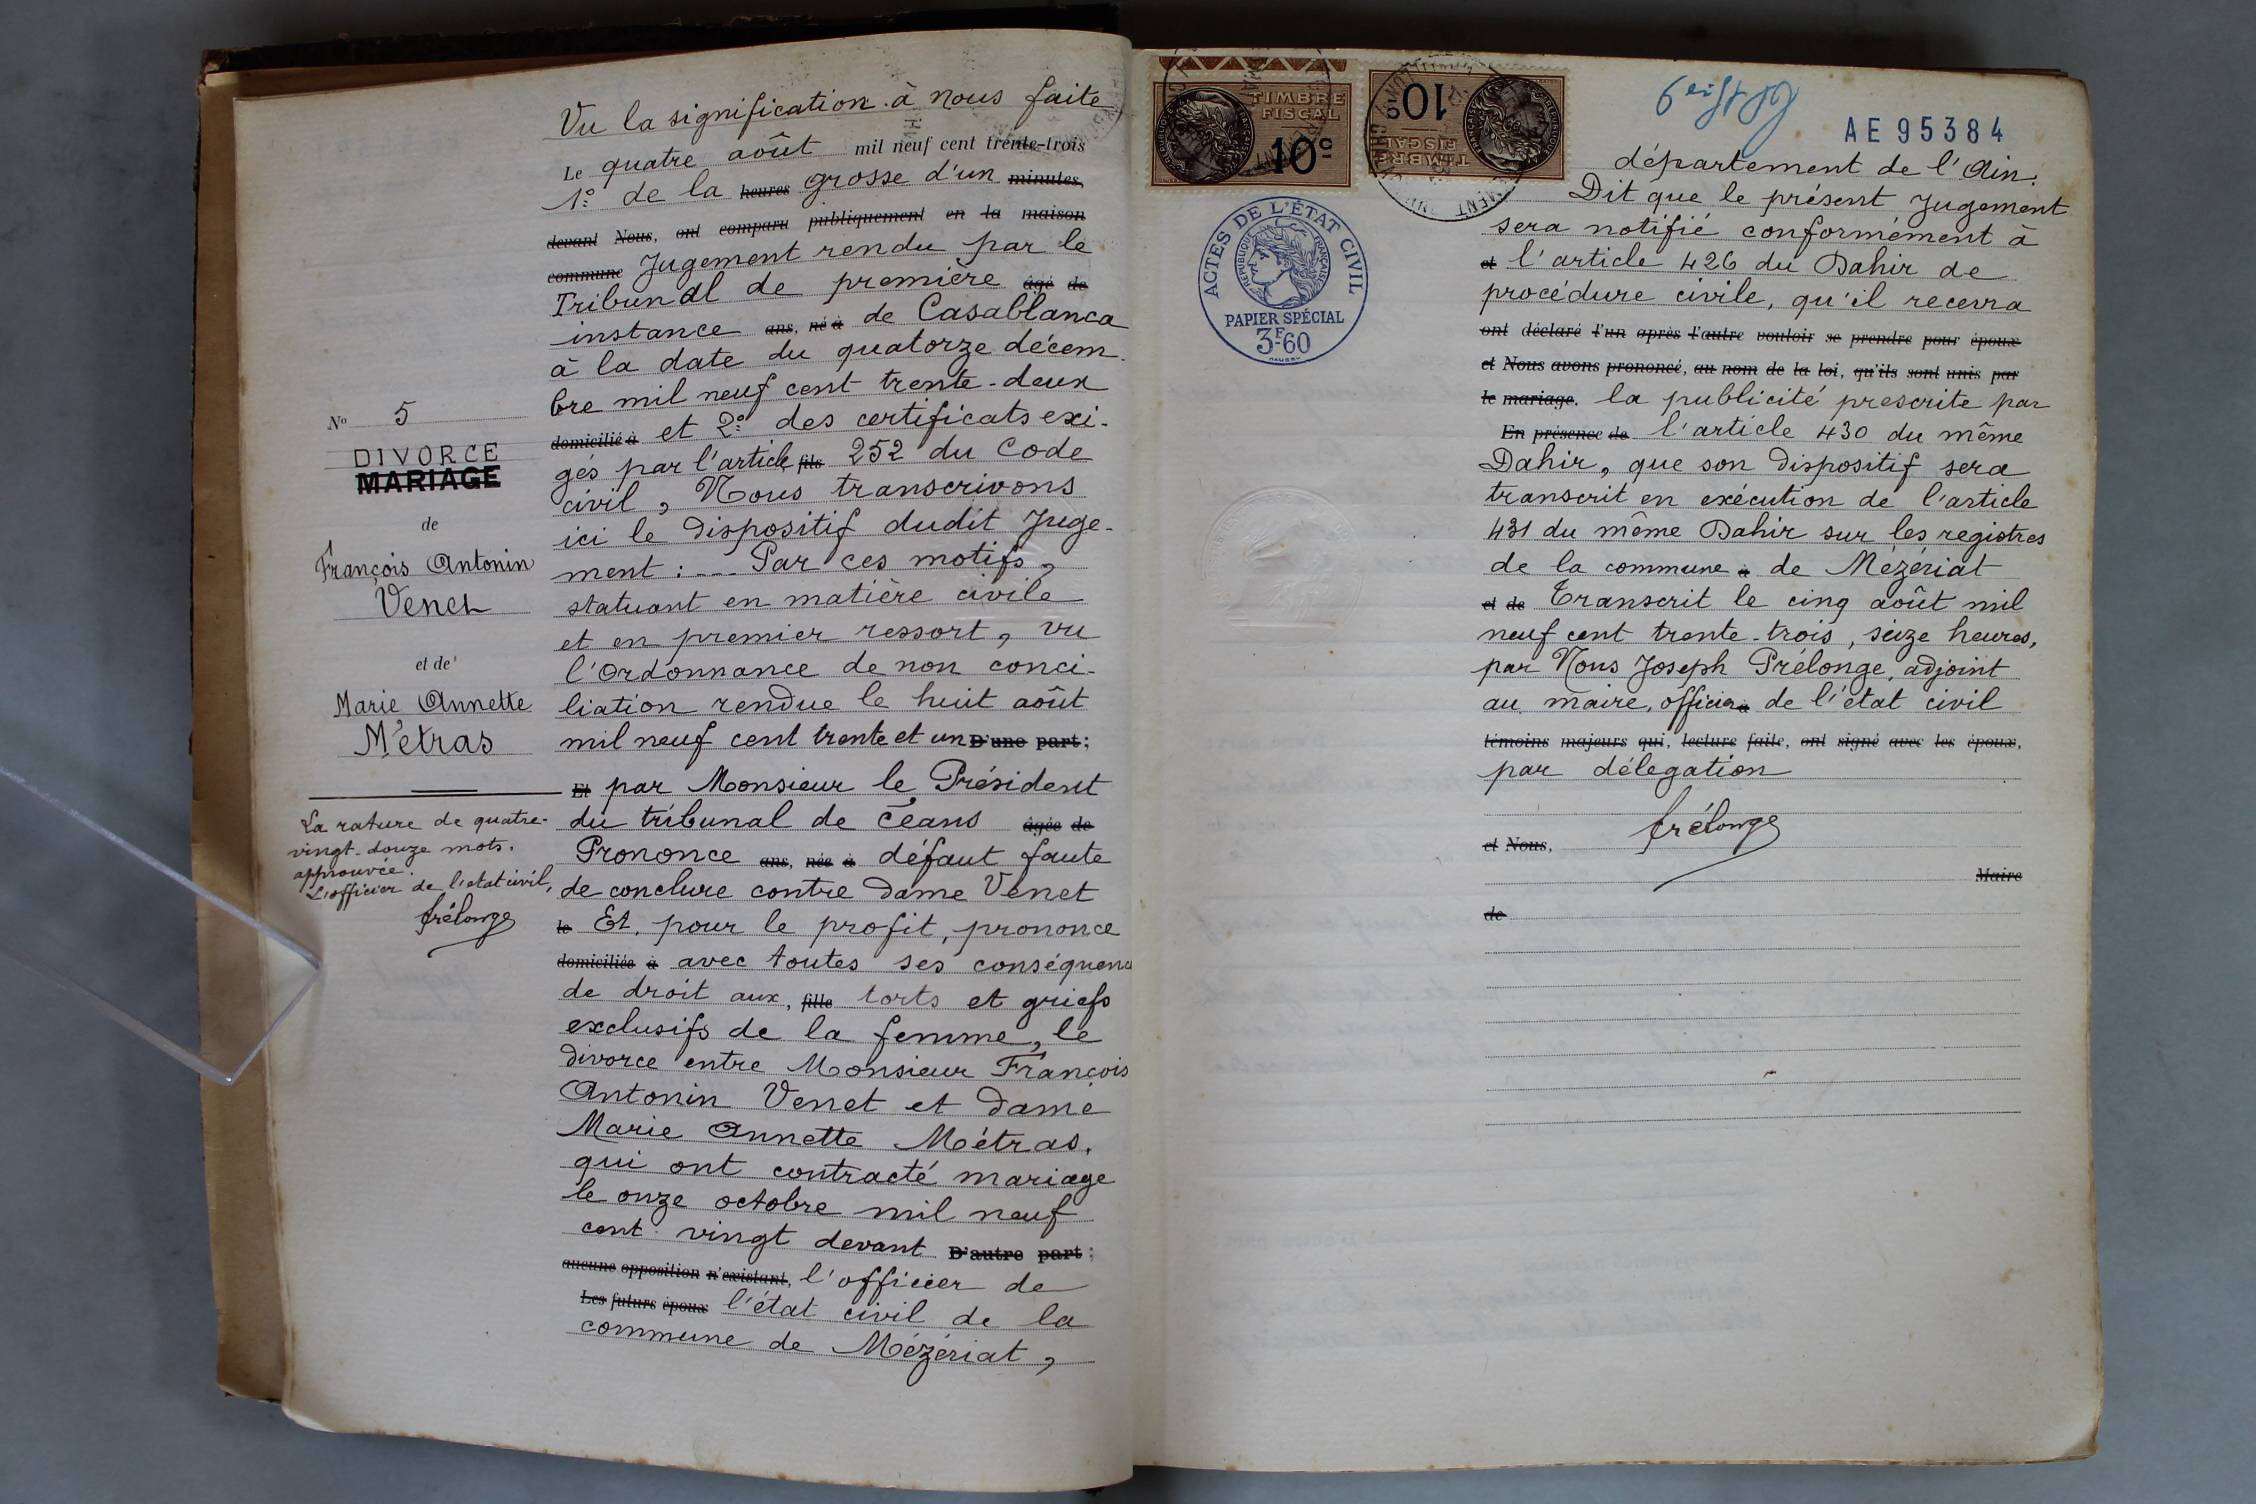 Vu la signification à nous faite
Le quatre août mil neuf cent trente-trois
1º de la heures grosse d'un minutes,
devant Nous, ont comparu publiquement en la maison
commune Jugement rendu par le
Tribunal de première âgé de
instance ans, né à de Casablanca
à la date du quatorze décem-
bre mil neuf cent trente-deux
domicilié à et 2º des certificats exi-
gés par l'article fils 252 du Code
civil, Nous transcrivons
ici le dispositif dudit Juge-
ment : --- Par ces motifs,
statuant en matière civile
et en premier ressort, vu
l'Ordonnance de non conci-
liation rendue le huit août
mil neuf cent trente et un D'une part ;
Et par Monsieur le Président
du tribunal de céans âgée de
Prononce ans, née à défaut faute
de conclure contre dame Venet
le Et, pour le profit, prononce
domiciliée à avec toutes ses conséquenc
de droit aux, fille torts et griefs
exclusifs de la femme, le
divorce entre Monsieur François
Antonin Venet et dame
Marie Annette Métras,
qui ont contracté mariage
le onze octobre mil neuf
cent vingt devant D'autre part ;
aucune opposition n'existant, l'officier de
Les futurs époux l'état civil de la
commune de Mézériat,
Nº 5
DIVORCE
MARIAGE
de
François Antonin
Venet
et de
Marie Annette
Métras
La rature de quatre-
vingt-douze mots.
approuvée.
L'officier de l'état civil,
Prélonge
TIMBRE
FISCAL
10c
TIMBRE
FISCAL
10c
AE 95384
ACTES DE L'ÉTAT CIVIL
RÉPUBLIQUE FRANÇAISE
PAPIER SPÉCIAL
3F60
département de l'Ain.
Dit que le présent Jugement
sera notifié conformément à
et l'article 426 du Dahir de
procédure civile, qu'il recevra
ont déclaré l'un après l'autre vouloir se prendre pour époux
et Nous avons prononcé, au nom de la loi, qu'ils sont unis par
le mariage. la publicité prescrite par
En présence de l'article 430 du même
Dahir, que son dispositif sera
transcrit en exécution de l'article
431 du même Dahir sur les registres
de la commune à de Mézériat
et de Transcrit le cinq août mil
neuf cent trente-trois, seize heures,
par Nous Joseph Prélonge, adjoint
au maire, officier à de l'état civil
témoins majeurs qui, lecture faite, ont signé avec les époux,
par délegation
Prélonge
et Nous,
Maire
de